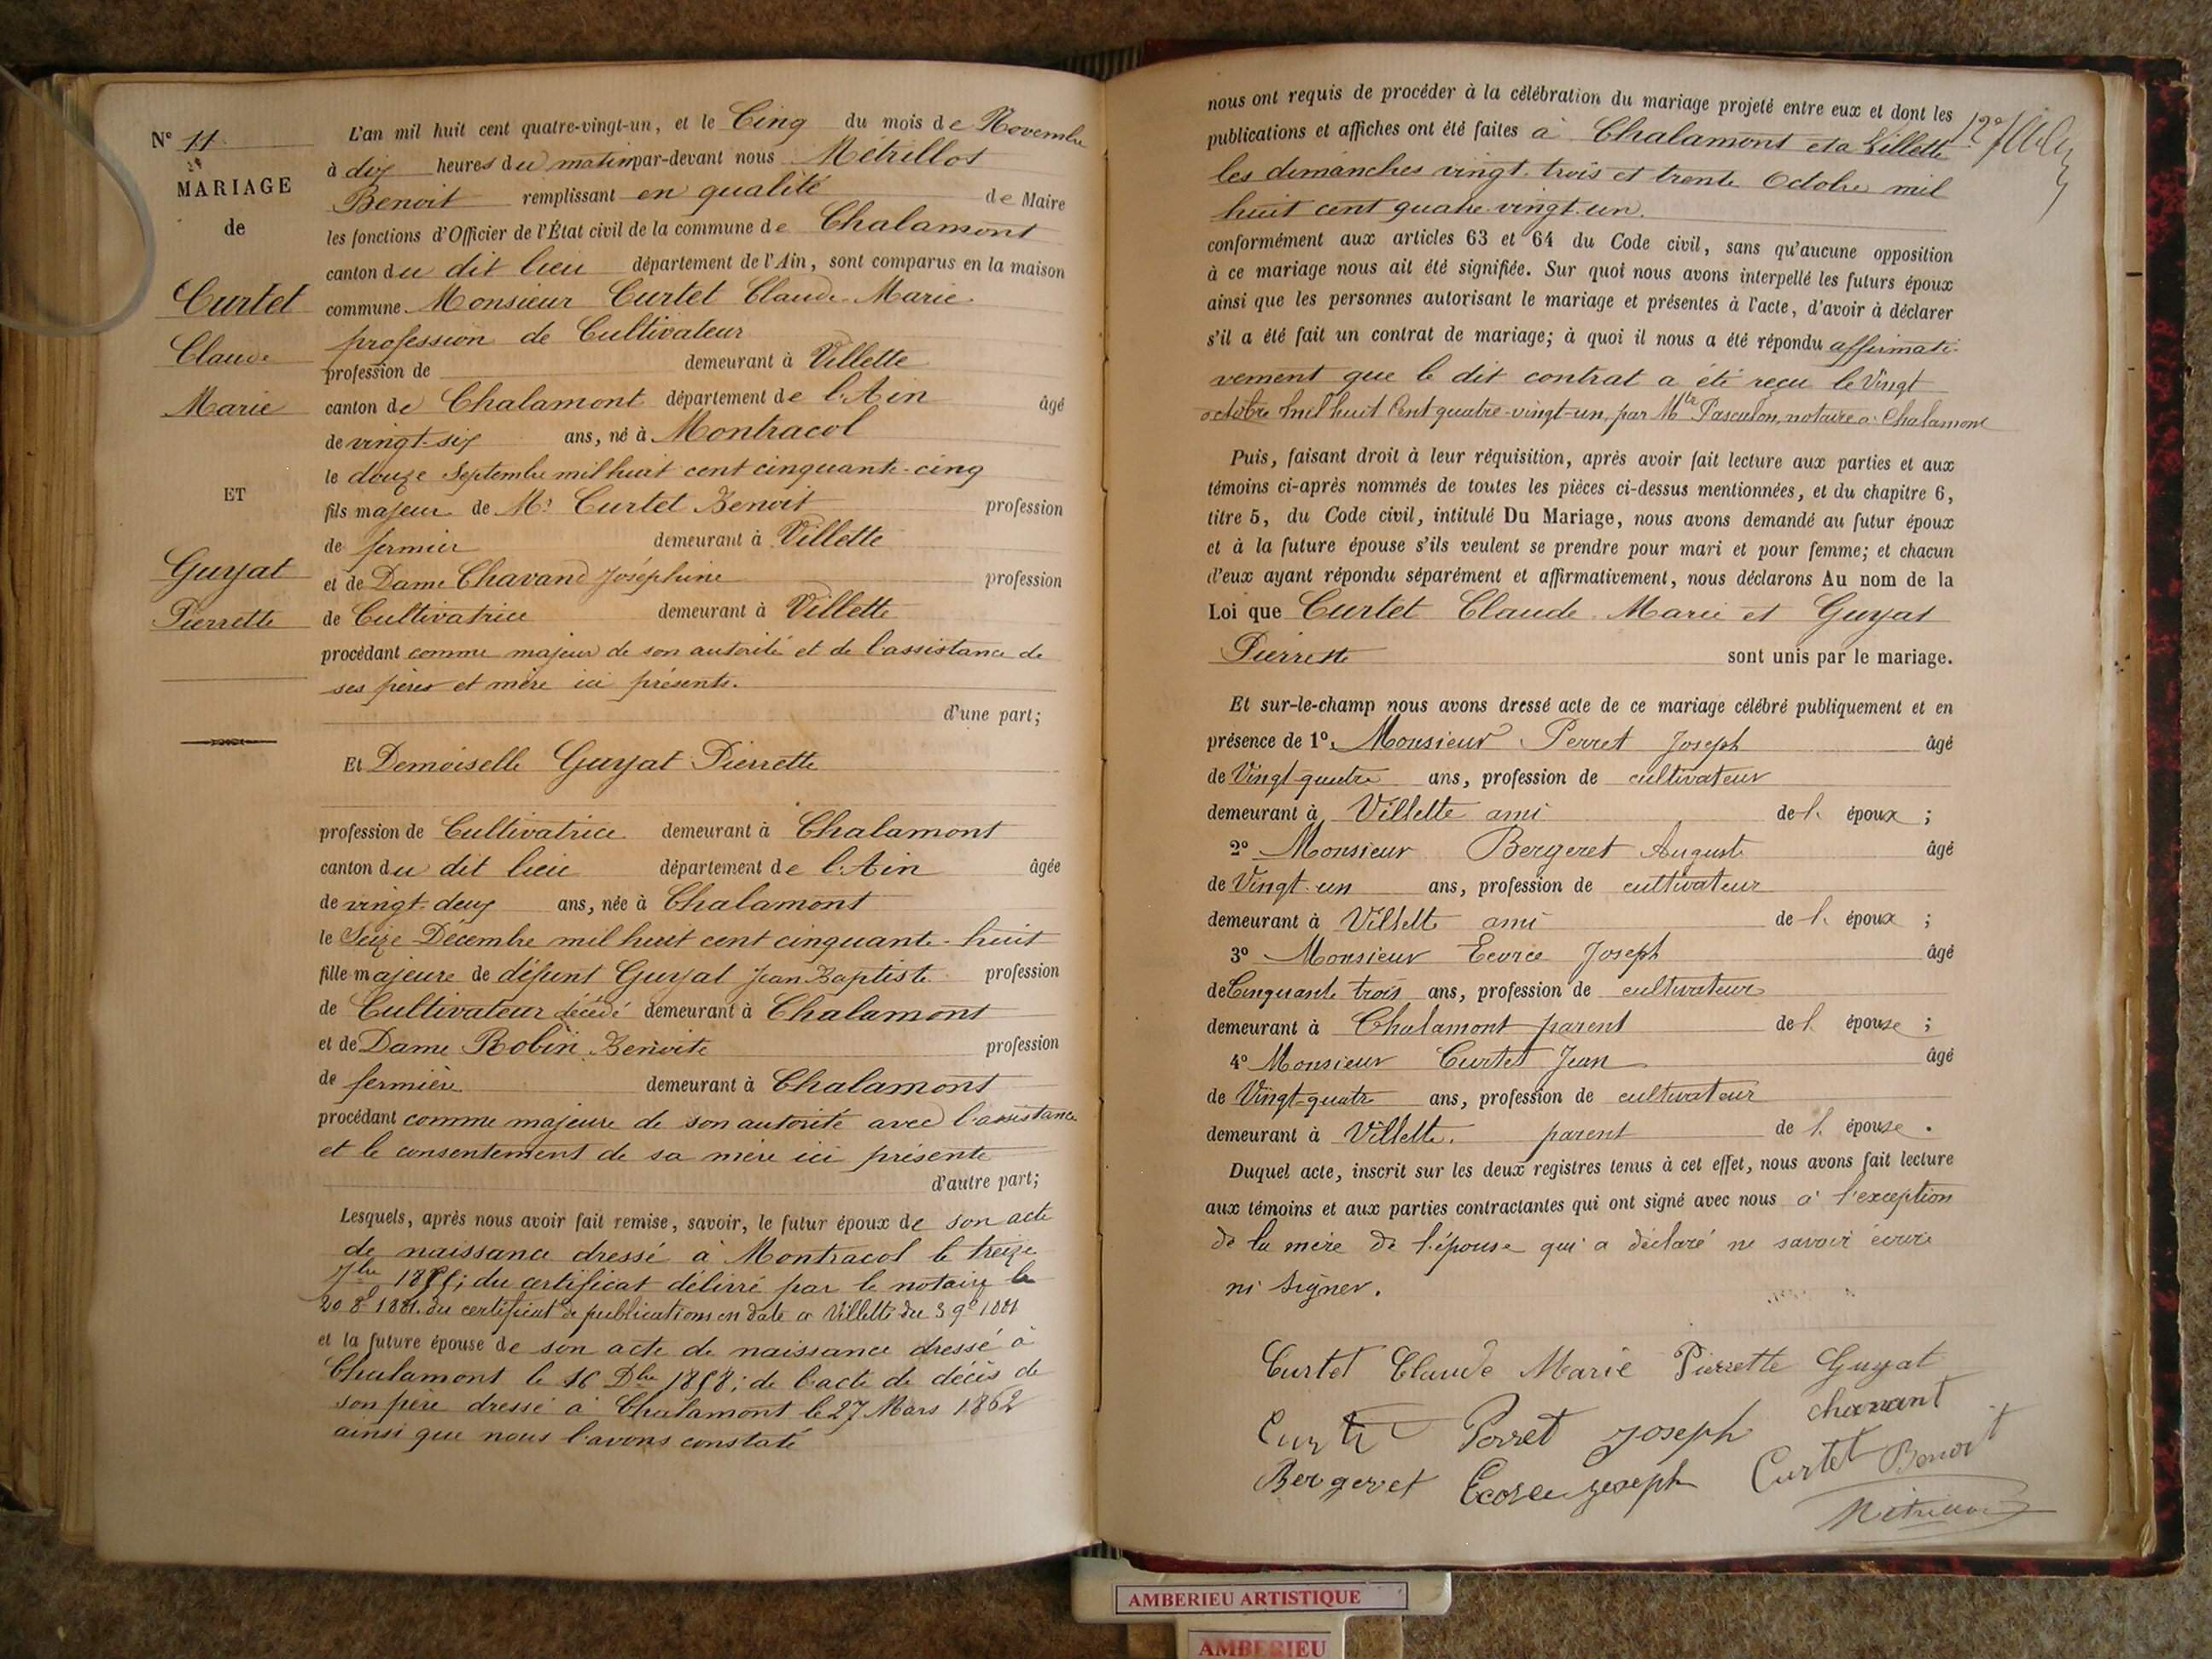 N° 11
MARIAGE
de
Curtet
Claude
Marie
ET
Guyat
Pierrette
L'an mil huit cent quatre-vingt-un, et le Cinq du mois de Novembre
à dix heures du matin par-devant nous Métrillot
Benoit remplissant en qualité de Maire
les fonctions d'Officier de l'État civil de la commune de Chalamont
canton du dit lieu département de l'Ain, sont comparus en la maison
commune Monsieur Curtet Claude-Marie
profession de Cultivateur
profession de demeurant à Villette
canton de Chalamont département de l'Ain âgé
de vingt-six ans, né à Montracol
le douze Septembre mil huit cent cinquante-cinq
fils majeur de Mr Curtet Benoit profession
de fermier demeurant à Villette
et de Dame Chavand Joséphine profession
de Cultivatrice demeurant à Villette
procédant comme majeur de son autorité et de l'assistance de
ses père et mère ici présents.
d'une part;
Et Demoiselle Guyat Pierrette
profession de Cultivatrice demeurant à Chalamont
canton du dit lieu département de l'Ain âgée
de vingt-deux ans, née à Chalamont
le Seize Décembre mil huit cent cinquante-huit
fille majeure de défunt Guyat Jean-Baptiste profession
de Cultivateur décédé demeurant à Chalamont
et de Dame Robin Benoite profession
de fermière demeurant à Chalamont
procédant comme majeure de son autorité avec l'assistance
et le consentement de sa mère ici présente
d'autre part;
Lesquels, après nous avoir fait remise, savoir, le futur époux de son acte
de naissance dressé à Montracol le treize
7bre 1855; du certificat délivré par le notaire le
20 8e 1881. du certificat de publications en date à Villette du 3 9e 1881
et la future épouse de son acte de naissance dressé à
Chalamont le 16 Dbre 1858; de l'acte de décès de
son père dressé à Chalamont le 27 Mars 1862
ainsi que nous l'avons constaté
nous ont requis de procéder à la célébration du mariage projeté entre eux et dont les
publications et affiches ont été faites à Chalamont et à Villette
les dimanches vingt-trois et trente Octobre mil
huit cent quatre-vingt-un.
conformément aux articles 63 et 64 du Code civil, sans qu'aucune opposition
à ce mariage nous ait été signifiée. Sur quoi nous avons interpellé les futurs époux
ainsi que les personnes autorisant le mariage et présentes à l'acte, d'avoir à déclarer
s'il a été fait un contrat de mariage; à quoi il nous a été répondu affirmati-
vement que le dit contrat a été reçu le Vingt
octobre mil huit Cent quatre-vingt-un, par Mtre Pasculon, notaire à Chalamont
Puis, faisant droit à leur réquisition, après avoir fait lecture aux parties et aux
témoins ci-après nommés de toutes les pièces ci-dessus mentionnées, et du chapitre 6,
titre 5, du Code civil, intitulé Du Mariage, nous avons demandé au futur époux
et à la future épouse s'ils veulent se prendre pour mari et pour femme; et chacun
d'eux ayant répondu séparément et affirmativement, nous déclarons Au nom de la
Loi que Curtet Claude Marie et Guyat
Pierrette sont unis par le mariage.
Et sur-le-champ nous avons dressé acte de ce mariage célébré publiquement et en
présence de 1°, Monsieur Perret Joseph âgé
de Vingt-quatre ans, profession de cultivateur
demeurant à Villette ami de l' époux ;
2° Monsieur Bergeret Auguste âgé
de Vingt-un ans, profession de cultivateur
demeurant à Villette ami de l' époux ;
3° Monsieur Ecorce Joseph âgé
de Cinquante trois ans, profession de cultivateur
demeurant à Chalamont parent de l' épouse ;
4° Monsieur Curtet Jean âgé
de Vingt-quatre ans, profession de cultivateur
demeurant à Villette. parent de l' épouse .
Duquel acte, inscrit sur les deux registres tenus à cet effet, nous avons fait lecture
aux témoins et aux parties contractantes qui ont signé avec nous à l'exception
de la mère de l'épouse qui a déclaré ne savoir écrire
ni signer.
Curtet Claude Marie Pierrette Guyat
chavant
Perret Joseph
Curtet Benoit
Bergeret Ecorce Joseph
AMBERIEU ARTISTIQUE
AMBERIEU